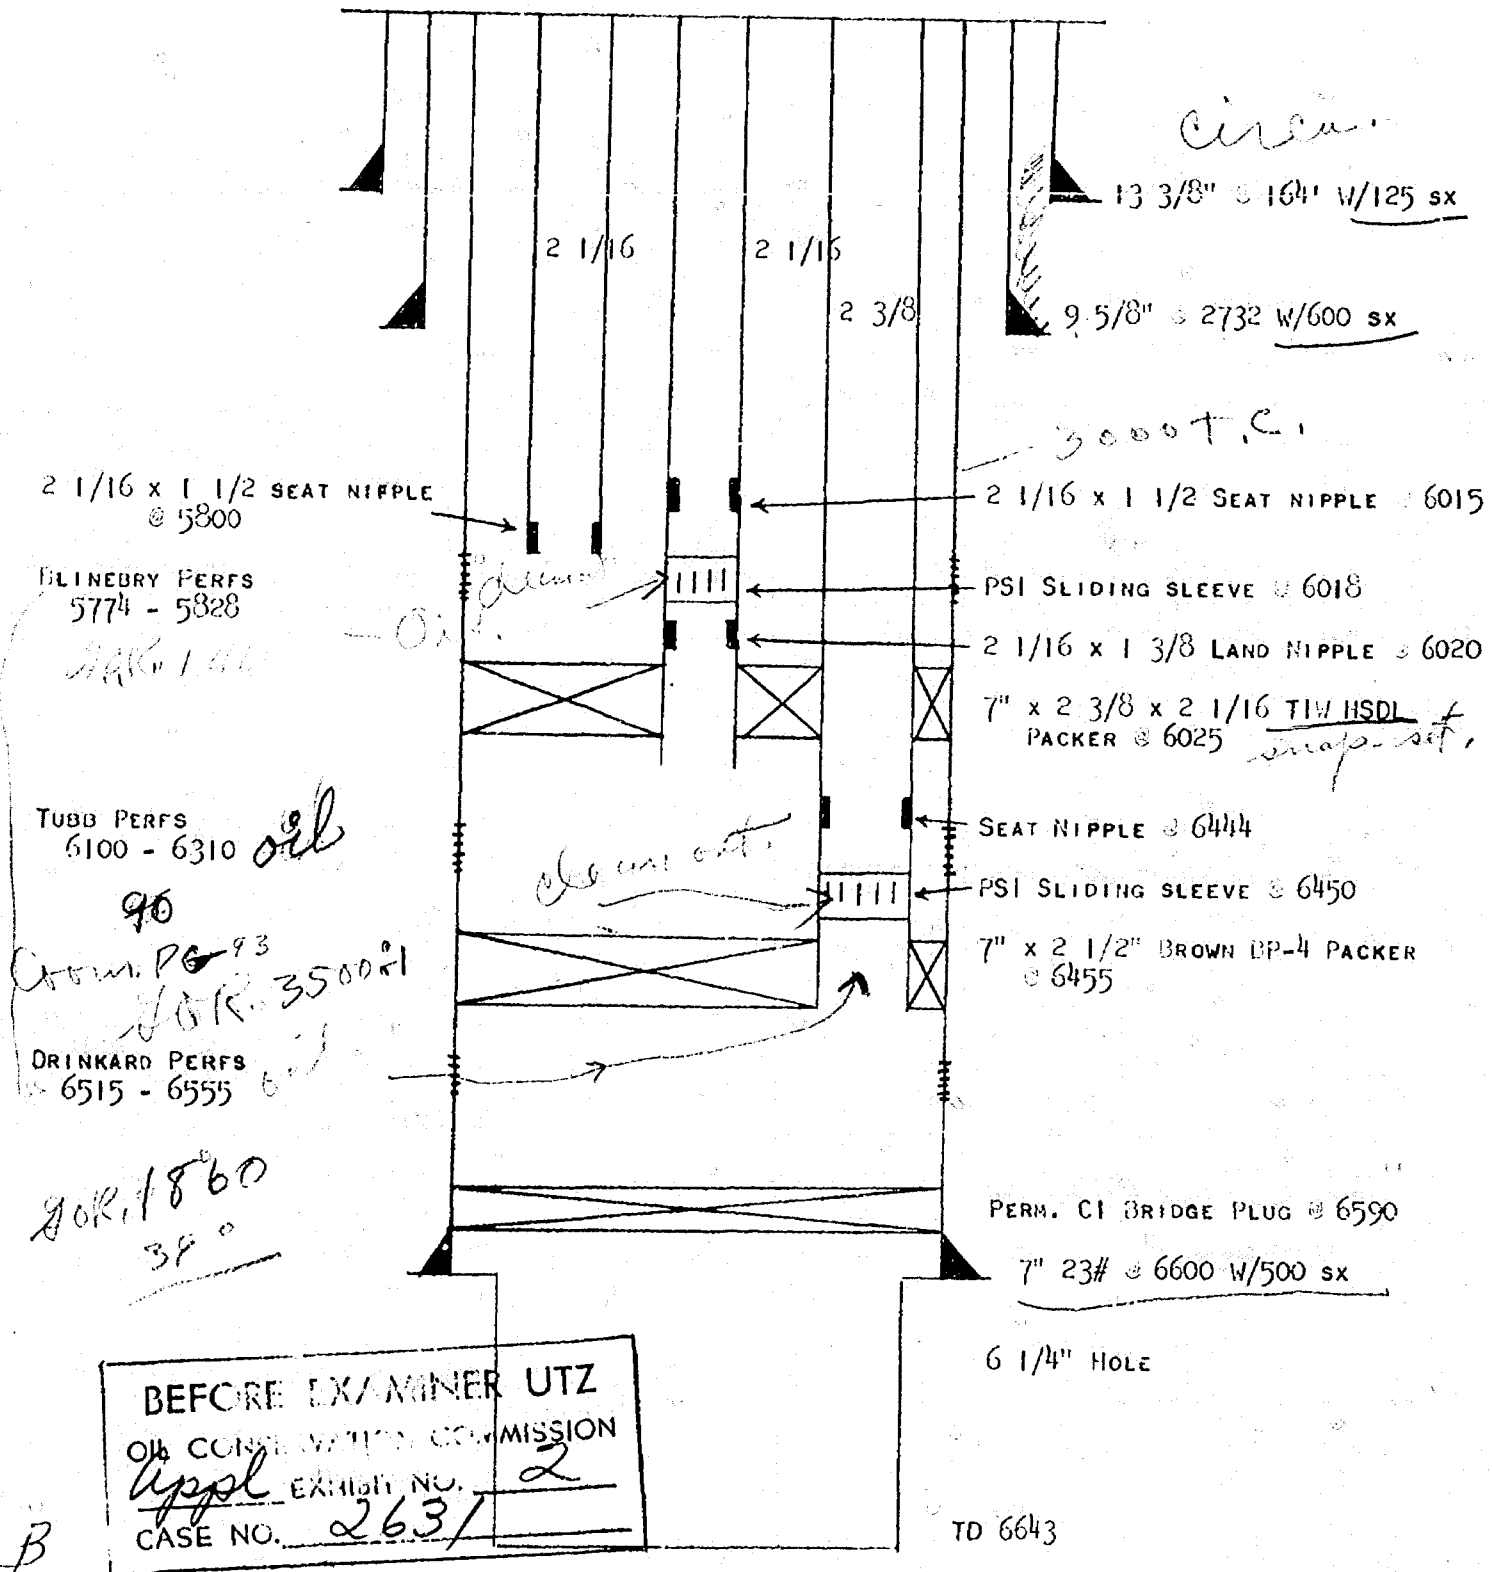 circu.
13 3/8" @ 164' W/125 SX
2 1/16
2 1/16
2 3/8
9 5/8" @ 2732 W/600 SX
3000 T.C.
2 1/16 X 1 1/2 SEAT NIPPLE
@ 5800
2 1/16 X 1 1/2 SEAT NIPPLE @ 6015
BLINEBRY PERFS
5774 - 5828
Oil.
PSI SLIDING SLEEVE @ 6018
2 1/16 X 1 3/8 LAND NIPPLE @ 6020
7" X 2 3/8 X 2 1/16 TIW HSDL
PACKER @ 6025 snap-set.
TUBB PERFS
6100 - 6310 oil
SEAT NIPPLE @ 6444
clean out.
PSI SLIDING SLEEVE @ 6450
7" X 2 1/2" BROWN BP-4 PACKER
@ 6455
GOR. 3500
DRINKARD PERFS
6515 - 6555 oil
GOR. 1860
PERM. CI BRIDGE PLUG @ 6590
7" 23# @ 6600 W/500 SX
6 1/4" HOLE
BEFORE EXAMINER UTZ
OIL CONSERVATION COMMISSION
Appl EXHIBIT NO. 2
CASE NO. 2631
B
TD 6643